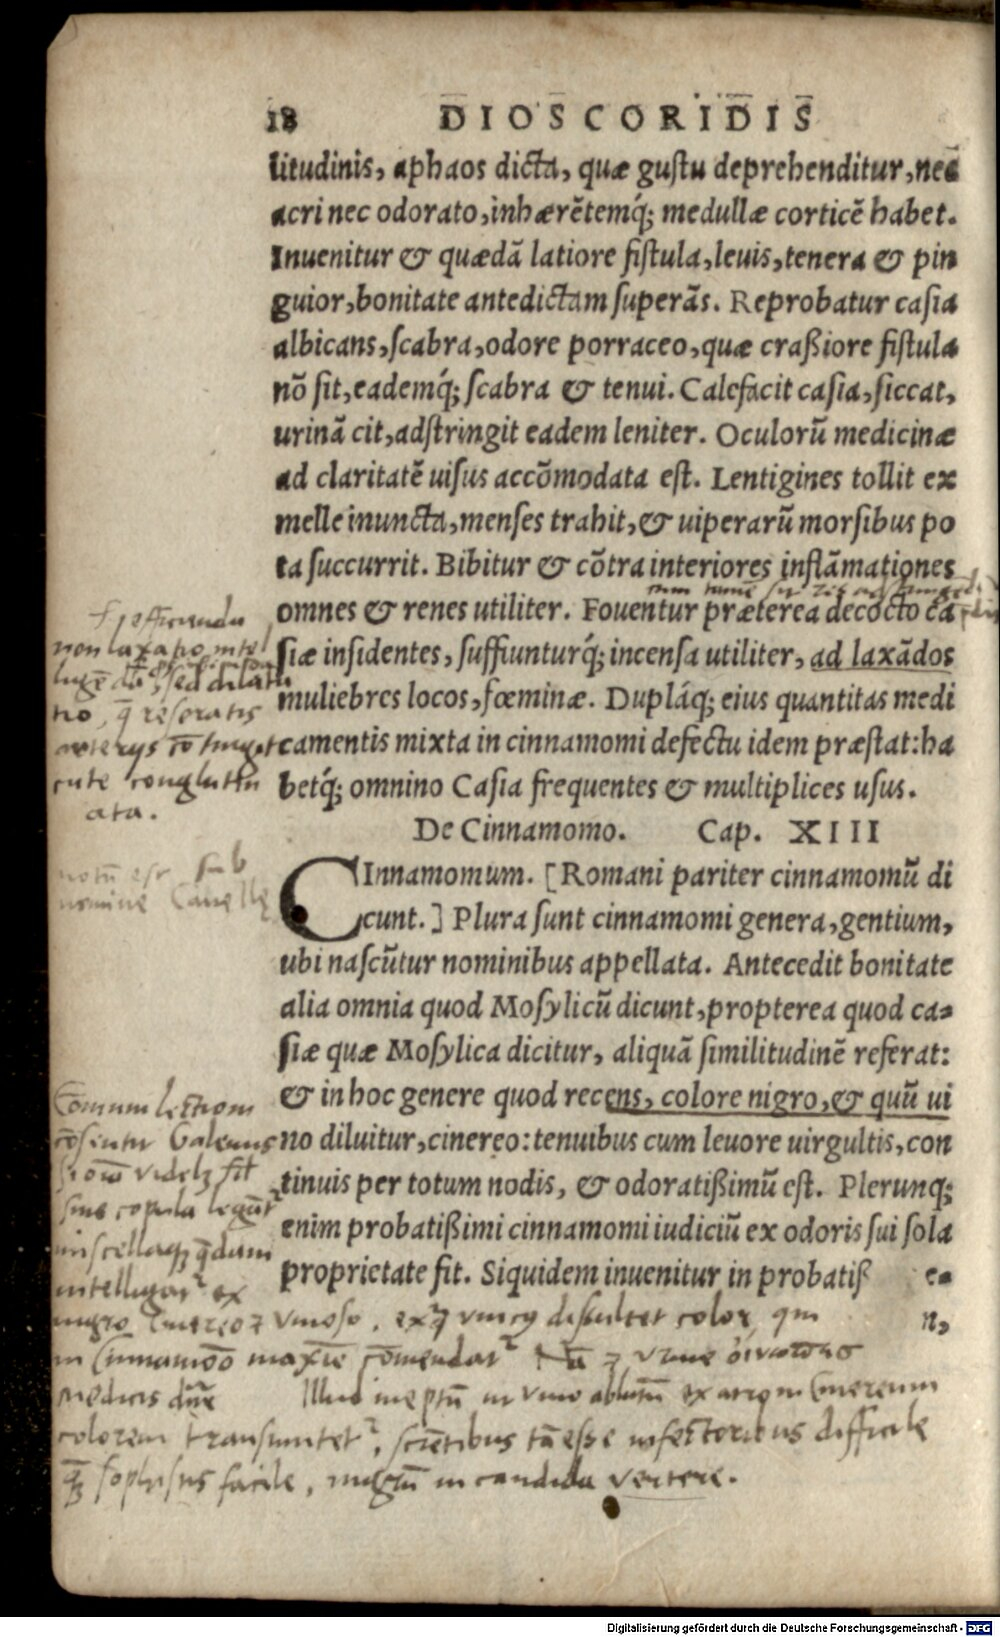 18 DIOSCORIDIS
litudinis, aphaos dicta, quæ gustu deprehenditur, nec
acri nec odorato, inhærẽtemq́; medullæ corticẽ habet.
Inuenitur & quædã latiore fistula, leuis, tenera & pin
guior, bonitate antedictam superãs. Reprobatur casia
albicans, scabra, odore porraceo, quæ craßiore fistula
nõ sit, eademq́; scabra & tenui. Calefacit casia, siccat,
urinã cit, adstringit eadem leniter. Oculorũ medicinæ
ad claritatẽ uisus accõmodata est. Lentigines tollit ex
melle inuncta, menses trahit, & uiperarũ morsibus po
ta succurrit. Bibitur & cõtra interiores inflãmationes
omnes & renes utiliter. Fouentur præterea decocto ca
siæ insidentes, suffiunturq́; incensa utiliter, ad laxãdos
muliebres locos, fœminæ. Duplaq́; eius quantitas medi
camentis mixta in cinnamomi defectu idem præstat: ha
betq́; omnino Casia frequentes & multiplices usus.
non laxatio intel
sed dilata
tio, q̃ reseratis
cute conglutin
ata.
De Cinnamomo. Cap. XIII
CInnamomum. [Romani pariter cinnamomũ di
cunt.] Plura sunt cinnamomi genera, gentium,
ubi nascũtur nominibus appellata. Antecedit bonitate
alia omnia quod Mosylicũ dicunt, propterea quod ca=
siæ quæ Mosylica dicitur, aliquã similitudinẽ referat:
& in hoc genere quod recens, colore nigro, & quũ ui
no diluitur, cinereo: tenuibus cum leuore uirgultis, con
tinuis per totum nodis, & odoratißimũ est. Plerunq;
enim probatißimi cinnamomi iudiciũ ex odoris sui sola
proprietate fit. Siquidem inuenitur in probatiß
notũ est sub
nomine Canellę
Galenus
sine copula legũt
miscellaq; quẽdam
intelligat ex
nigro cinereo & vinoso, color, qui
in Cinnamomo maxime cõmendat
Medicis
Illud ineptũ in vino ablutũ ex atro in Cinereum
colorem transmutet, infectoribus difficile
sophistis facile, nigrũ in candida vertere.
n,
Digitalisierung gefördert durch die Deutsche Forschungsgemeinschaft - DFG